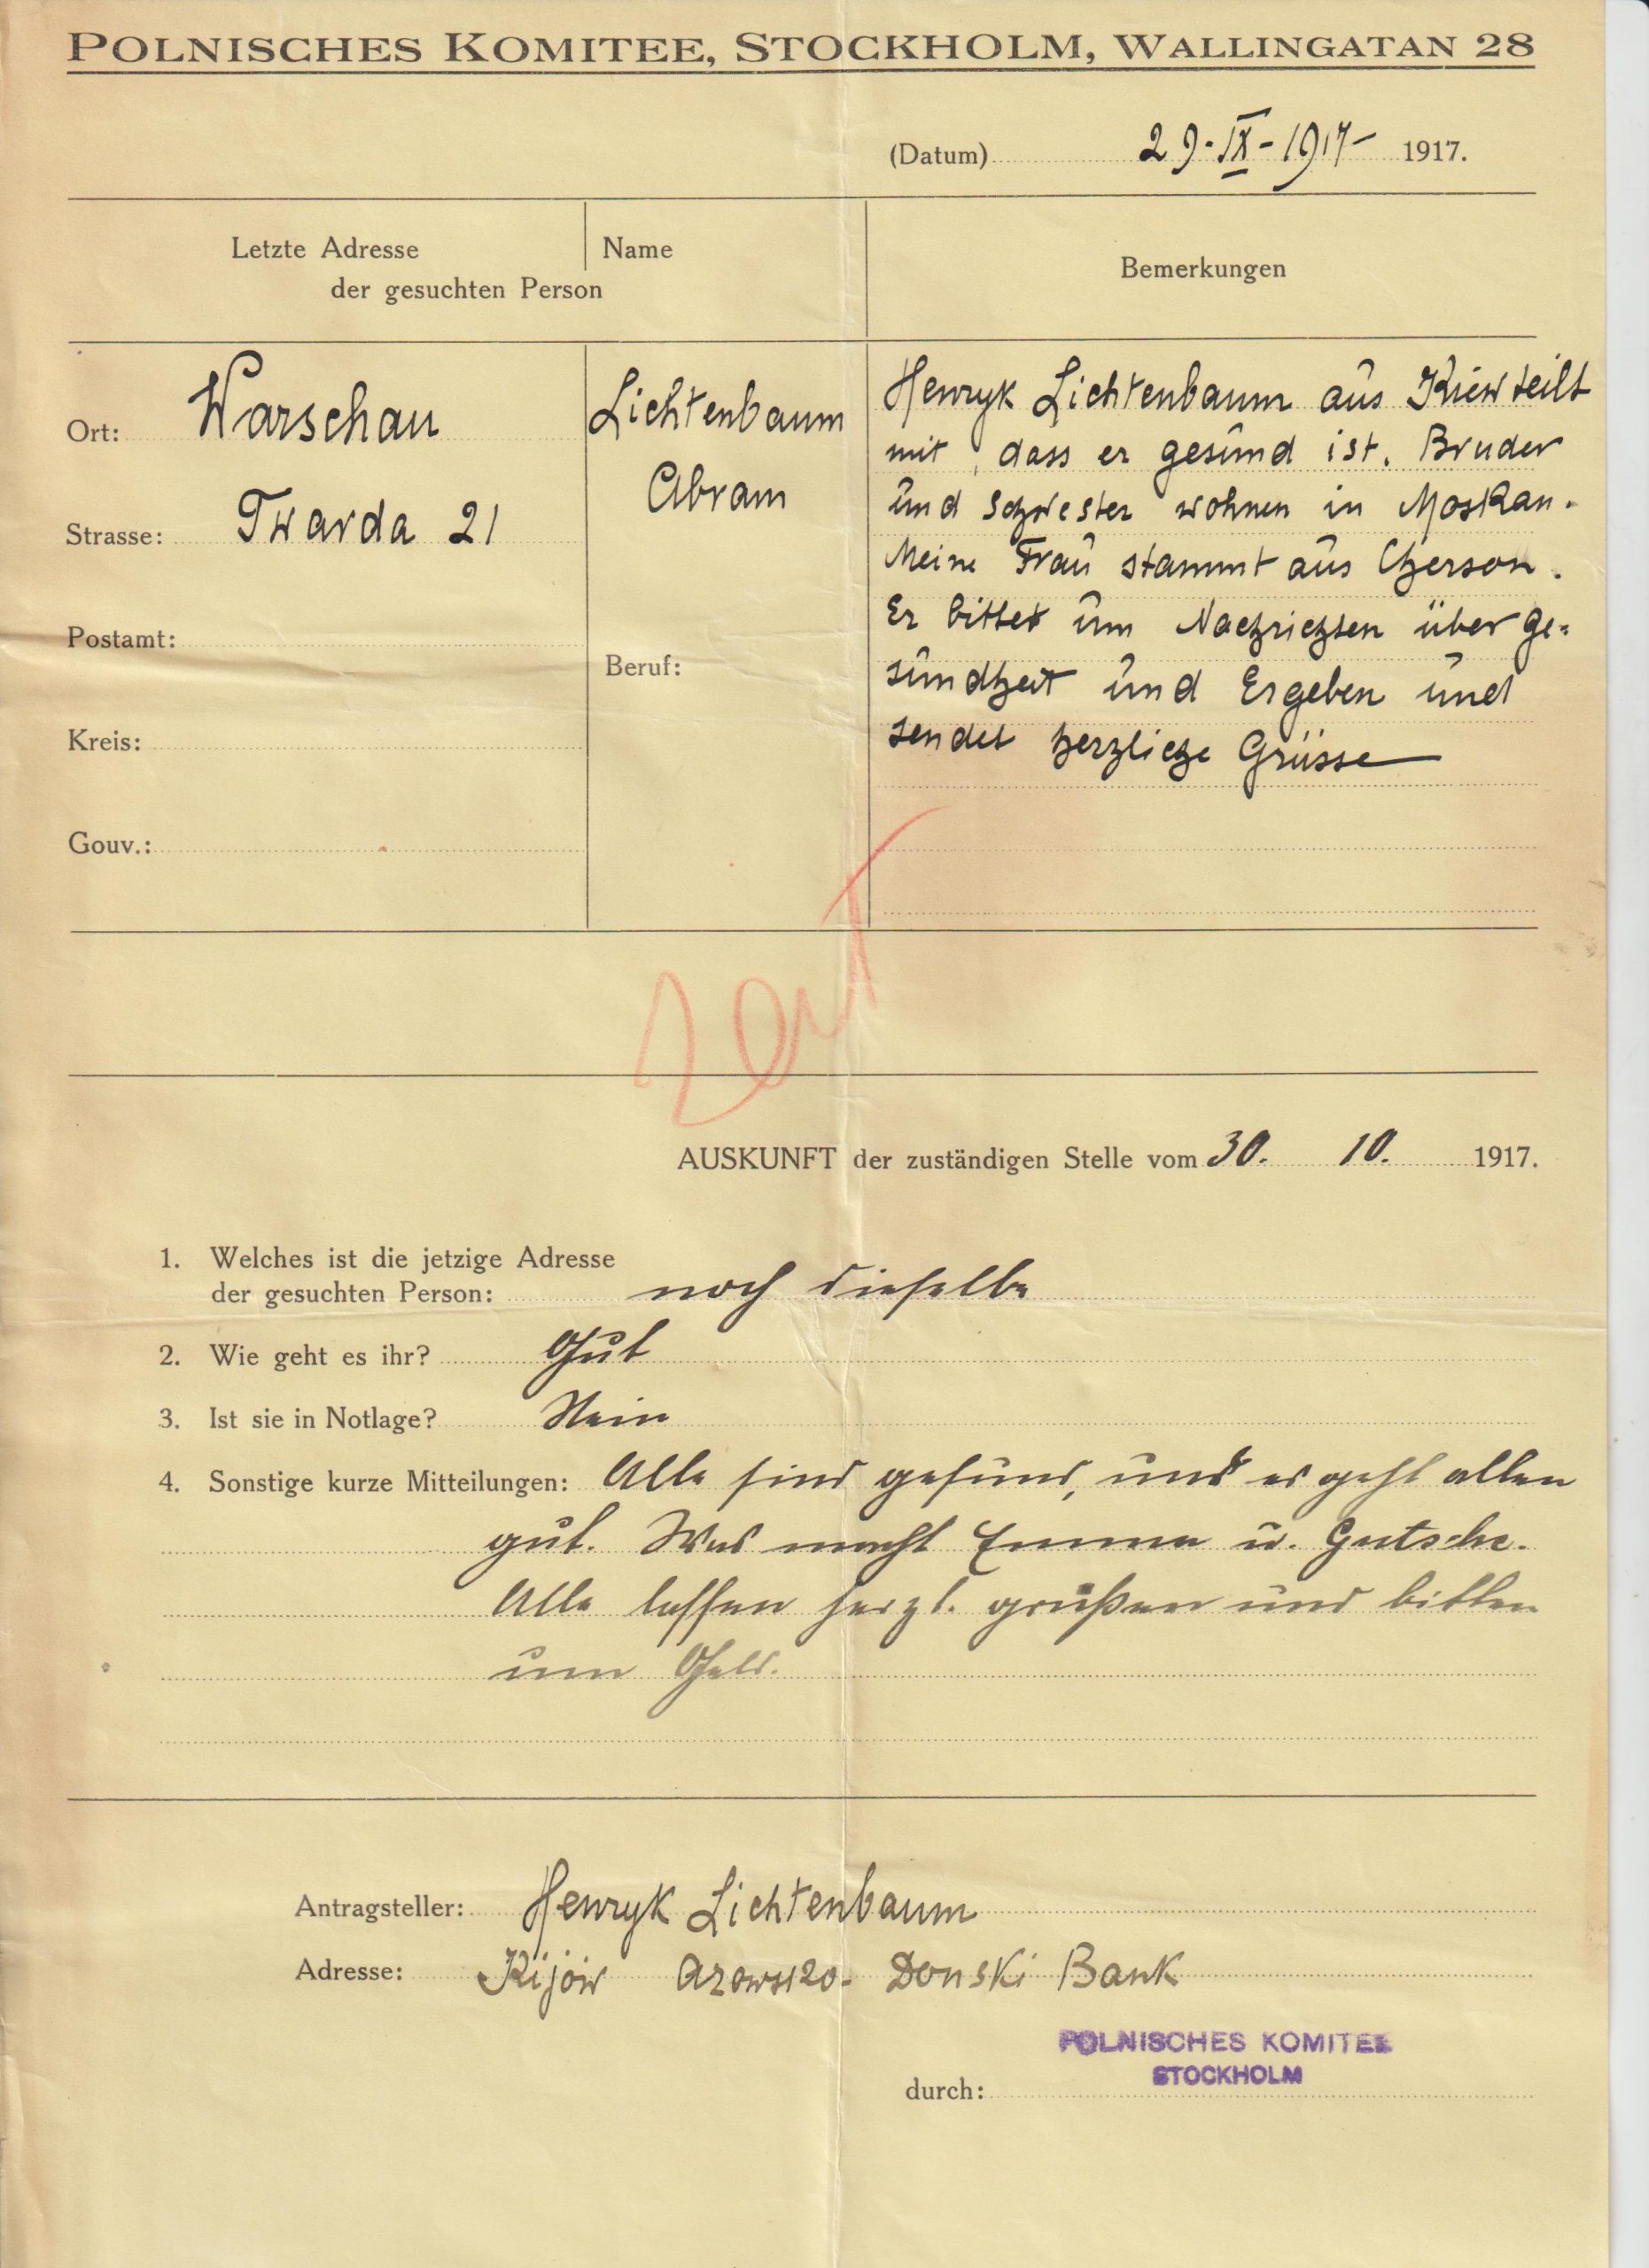 POLNISCHES KOMITEE, STOCKHOLM, WALLINGATAN 28
(Datum) 29-IX-1917- 1917.
Letzte Adresse
der gesuchten Person
Name
Bemerkungen
Ort: Warschau
Strasse: Twarda 21
Postamt:
Kreis:
Gouv.:
Lichtenbaum
Abram
Beruf:
Henryk Lichtenbaum aus Kiew teilt
mit, dass er gesund ist. Bruder
und Schwester wohnen in Moskau.
Meine Frau stammt aus Cherson.
Er bittet um Nachrichten über Ge=
sundheit und Ergeben und
sendet herzliche Grüsse
AUSKUNFT der zuständigen Stelle vom 30. 10. 1917.
1. Welches ist die jetzige Adresse
der gesuchten Person: noch dieselbe
2. Wie geht es ihr? Gut
3. Ist sie in Notlage? Nein
4. Sonstige kurze Mitteilungen: Alle sind gesund, und es geht allen
gut. Was macht Emma u. Gutsche.
Alle lassen herzl. grüßen und bitten
um Geld.
Antragsteller: Henryk Lichtenbaum
Adresse: Kijów Azowsko-Donski Bank
POLNISCHES KOMITEE
STOCKHOLM
durch: